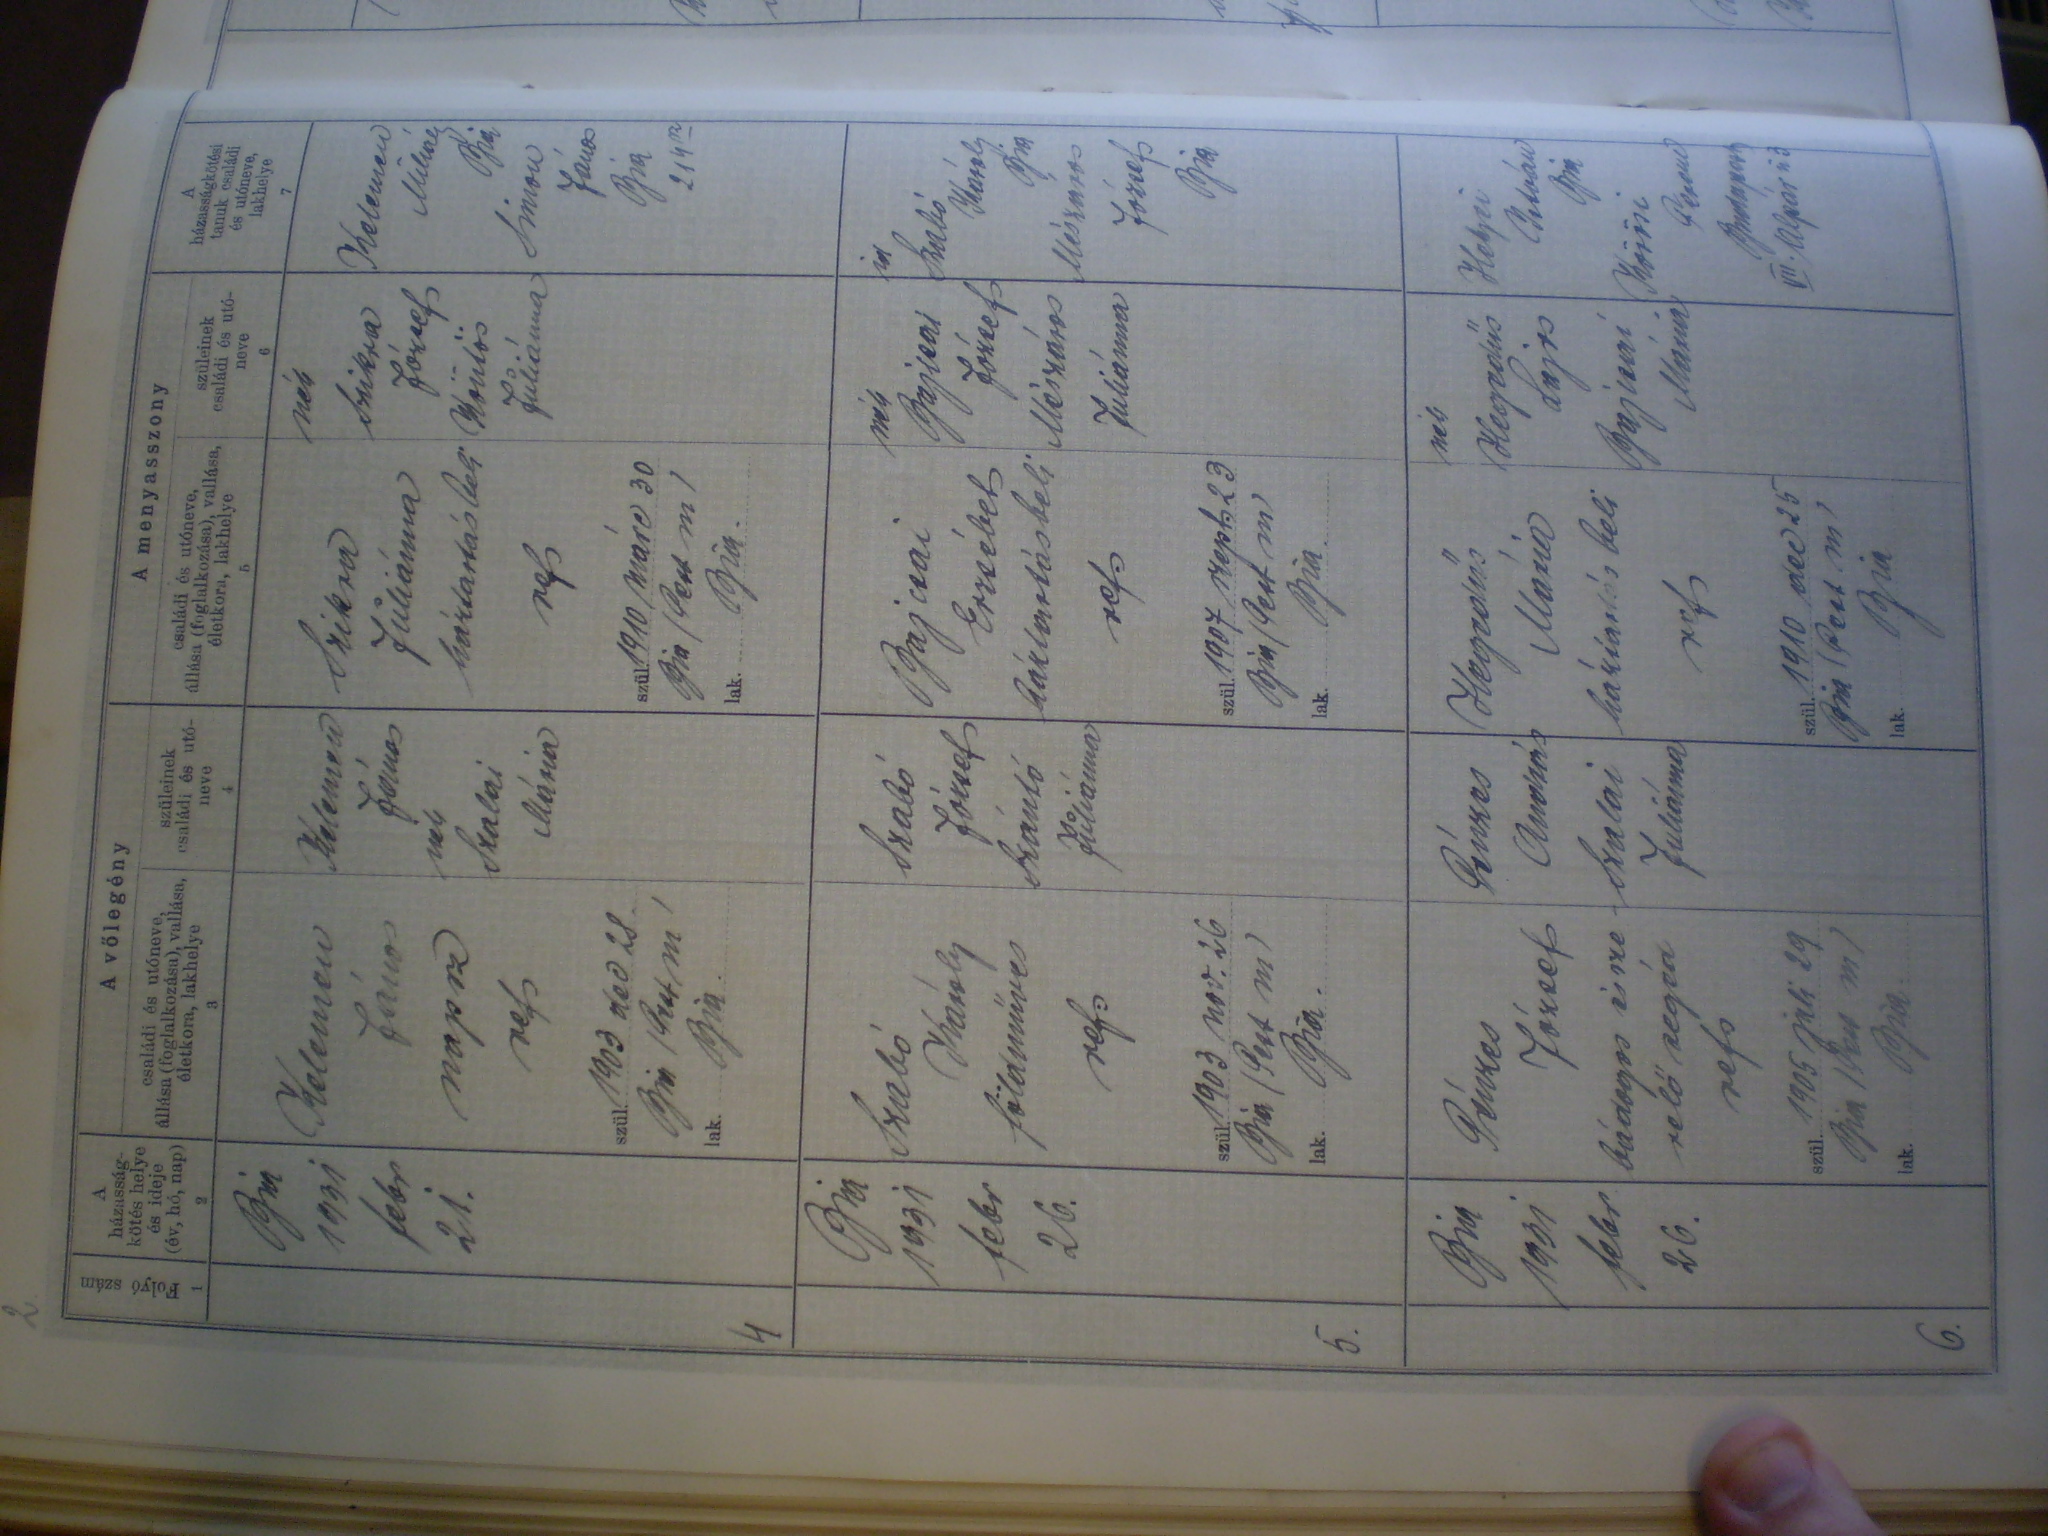 2.
Folyó
szám
1
A
házasság-
kötés helye
és ideje
(év, hó, nap)
2
A vőlegény
családi és utóneve,
állása (foglalkozása), vallása,
életkora, lakhelye
3
szüleinek
családi és utó-
neve
4
A menyasszony
családi és utóneve,
állása (foglalkozása), vallása,
életkora, lakhelye
5
szüleinek
családi és utó-
neve
6
A
házasságkötési
tanuk családi
és utóneve,
lakhelye
7
4
Bia
1931
febr
21.
Kelemen
János
napsz
ref
szül. 1903 dec 28.
Bia (Pest m)
lak. Bia.
Kelemen
János
néh
Szalai
Mária
Szikra
Juliánna
háztartásbeli
ref
szül. 1910 márc 30
Bia (Pest m)
lak. Bia.
néh
Szikra
József
Körtös
Juliánna
Kelemen
Mihály
Bia
Simon
János
Bia
214
5.
Bia
1931
febr
26.
Szabó
Károly
földműves
ref
szül. 1903 nov. 26
Bia (Pest m)
lak. Bia.
Szabó
József
Szántó
Juliánna
Bajcsai
Erzsébet
háztartásbeli
ref
szül. 1907 szept 23
Bia (Pest m)
lak. Bia.
néh
Bajcsai
József
Mészáros
Juliánna
id
Szabó
Károly
Bia
Mészáros
József
Bia
6.
Bia
1931
febr.
26.
Pénzes
József
bádogos és sze-
relő segéd
ref
szül. 1905 júli 29
Bia (Pest m)
lak. Bia.
Pénzes
András
Szalai
Juliánna
Hegedűs
Mária
háztartásbeli
ref
szül. 1910 dec 25
Bia (Pest m)
lak. Bia
néh
Hegedűs
Lajos
Bajcsai
Mária
István
Bia
Ferenc
Budapest
VIII.